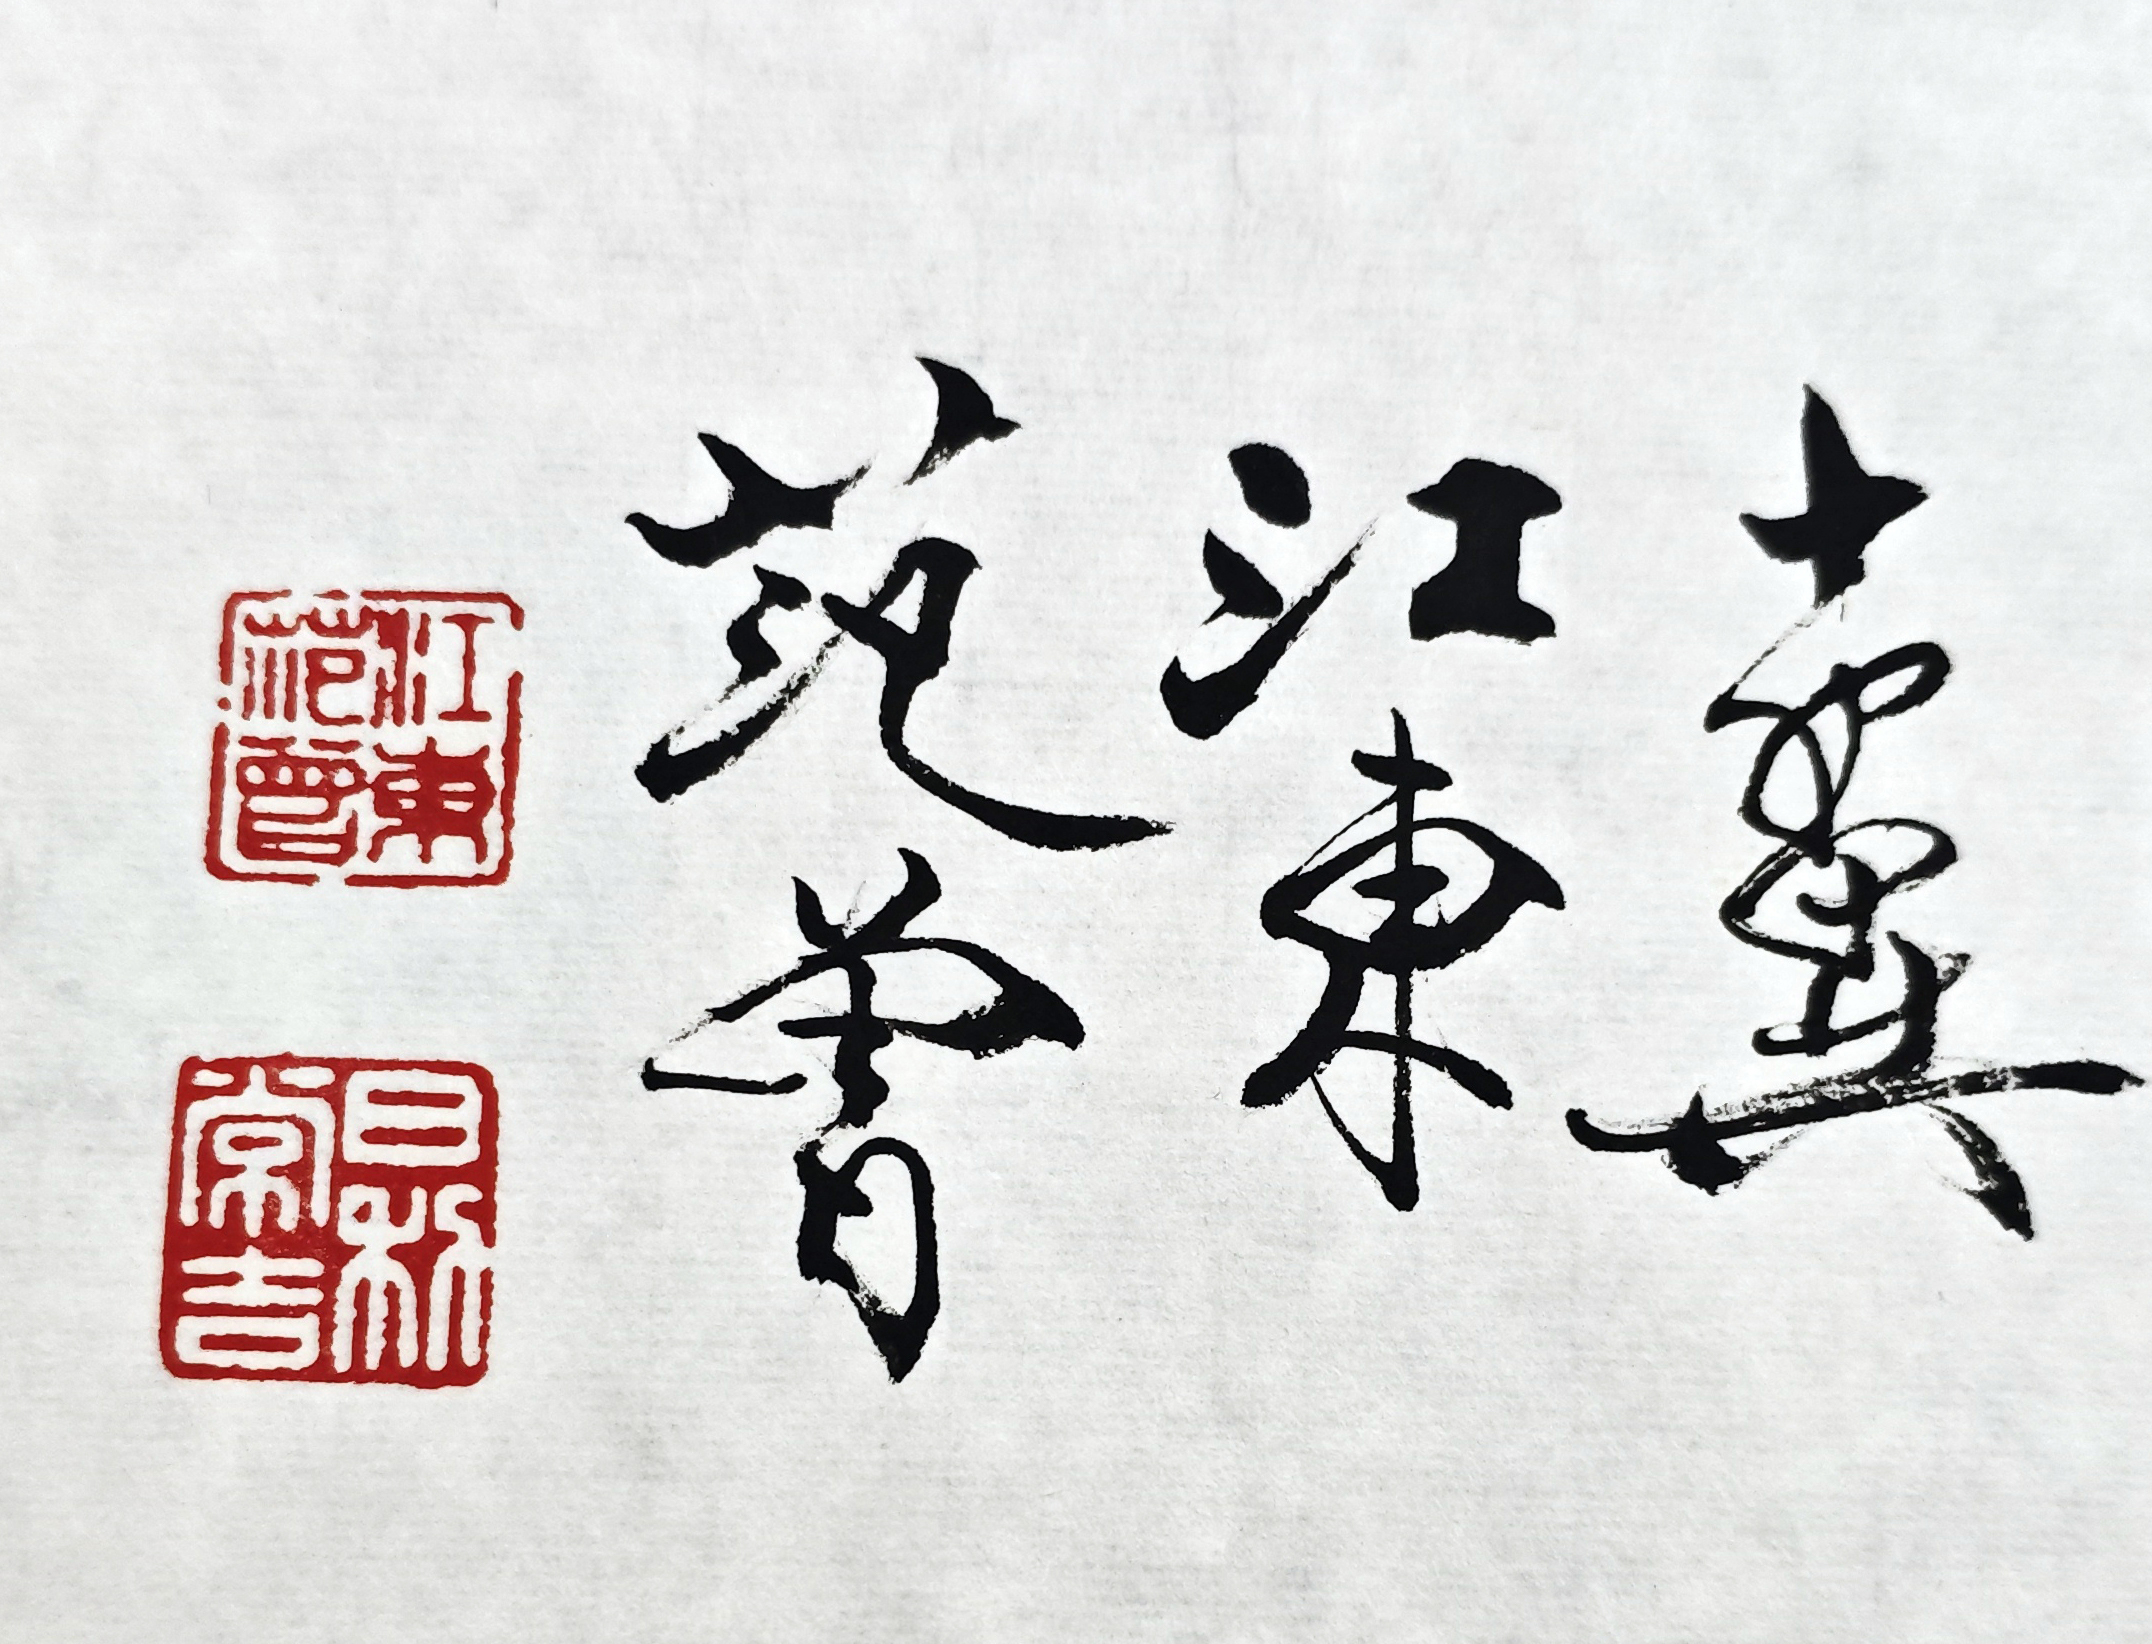 十翼
江東
范曾
江東
范曾
日利
常吉